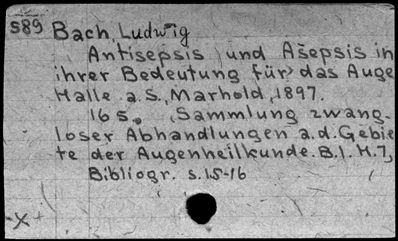 589 Bach, Ludwig
Antisepsis und Asepsis in
ihrer Bedeutung für das Auge
Halle a. S., Marhold, 1897.
16 s. (Sammlung zwang-
loser Abhandlungen a. d. Gebie-
te der Augenheilkunde. B. I. H. 7)
Bibliogr. s. 15-16
-X+